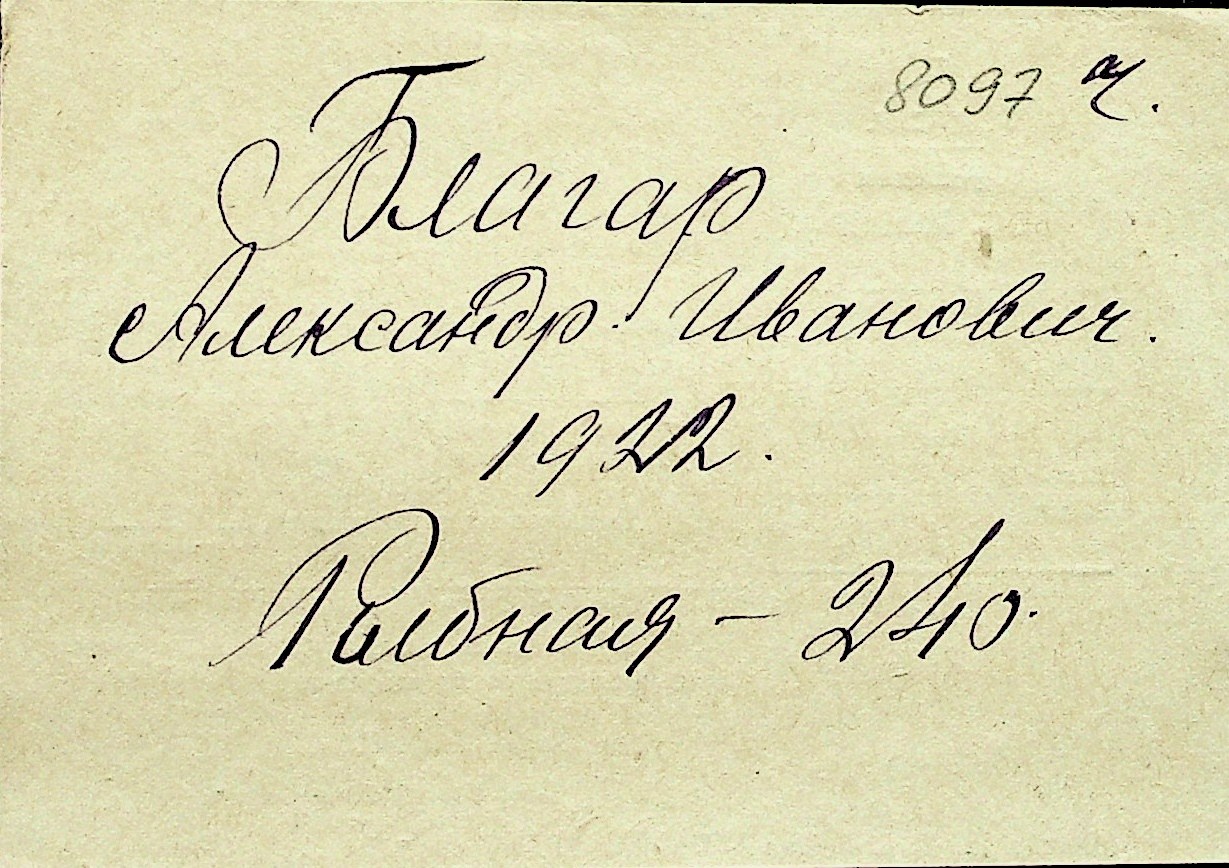 8097 ч.
Благар
Александр Иванович.
1922.
Рыбная - 240.